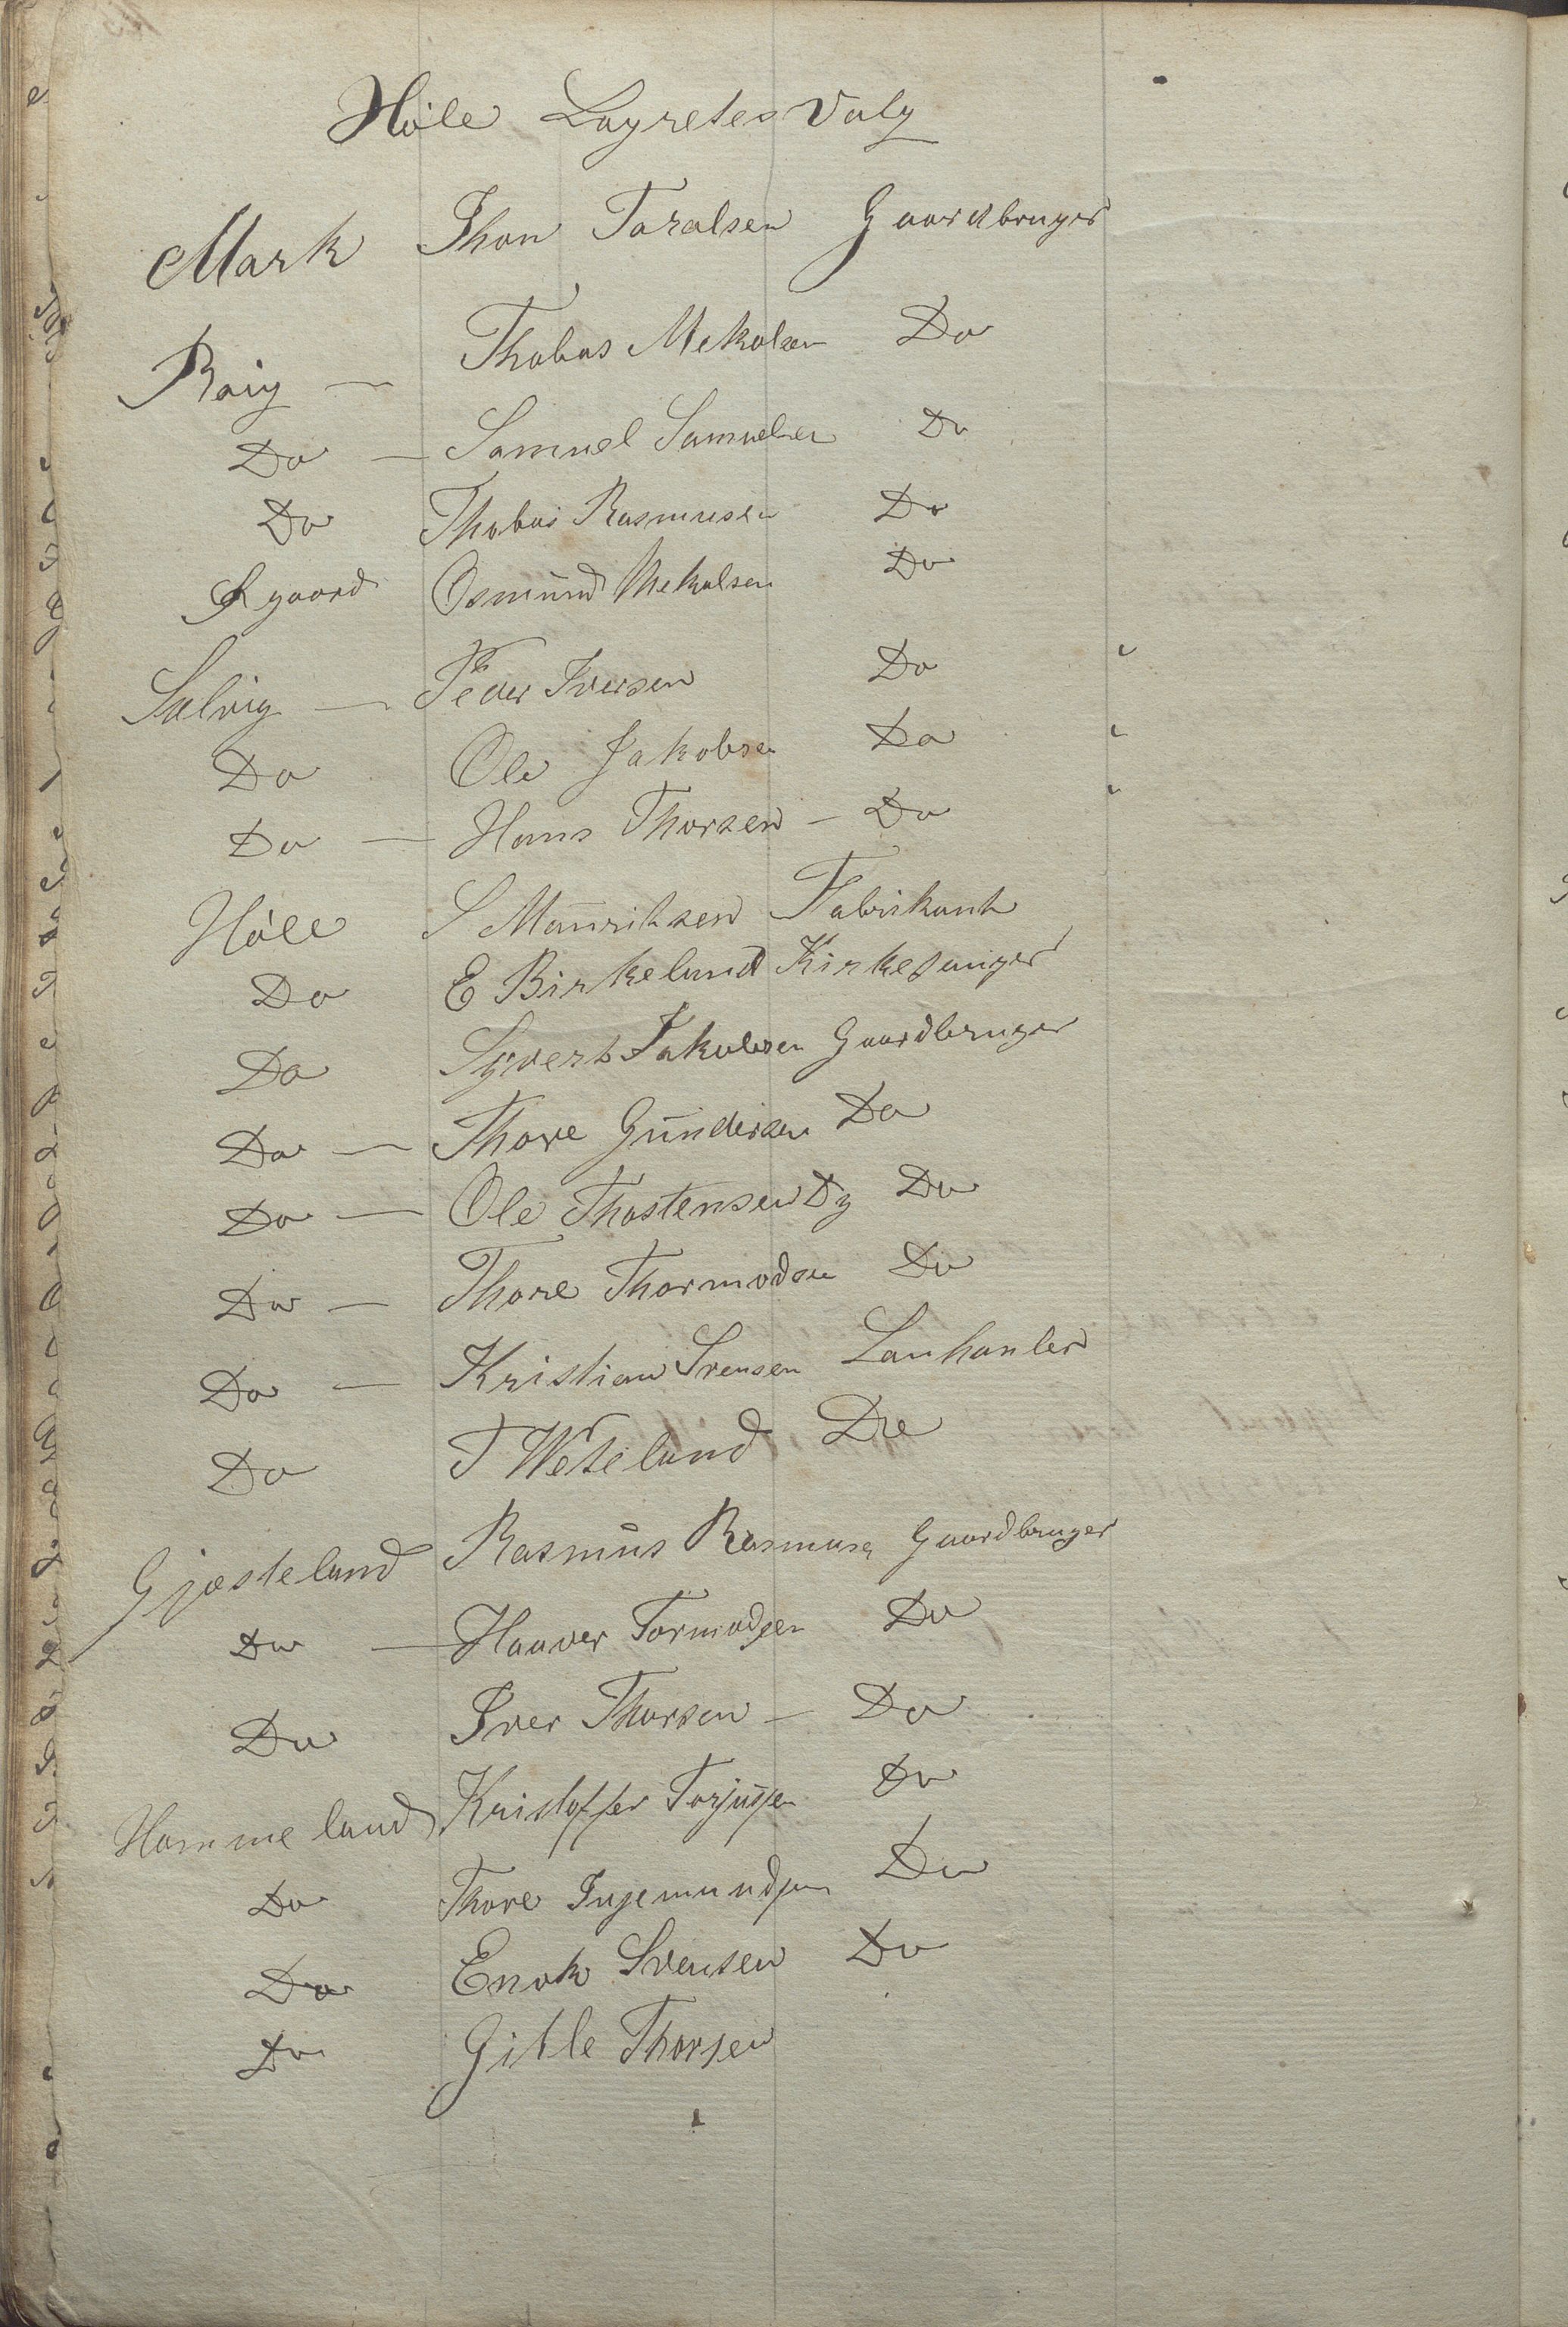 Höle Lagretes Valg
Mark Jhon Taralsen Gaardbruger
Roig — Thobas Mekalsen Do
Do — Samuel Samuelsen Do
Do Thobas Rasmusen Do
Rgaard Osmund Mekalsen Do
Selvig — Peder Iversen Do
Do Ole Jakobsen Do
Do — Hans Thorsen — Do
Höle S Mauritsen Fabrikant
Do E Birkeland Kirkesanger
Do Syvert Jakobsen Gaardbruger
Do — Thore Gundersen Do
Do — Ole Thostensen Dy Do
Do — Thore Thormodsen Do
Do — Kristian Svensen Lanhanler
Do T Weteland Do
Gjesteland Rasmus Rasmusen Gaardbruger
Do — Haaver Tormodsen Do
Do Iver Thorsen — Do
Hommeland Kristoffer Torjusen Do
Do Thore Ingemundsen Do
Do Enok Svensen Do
Do Gitle Thorsen